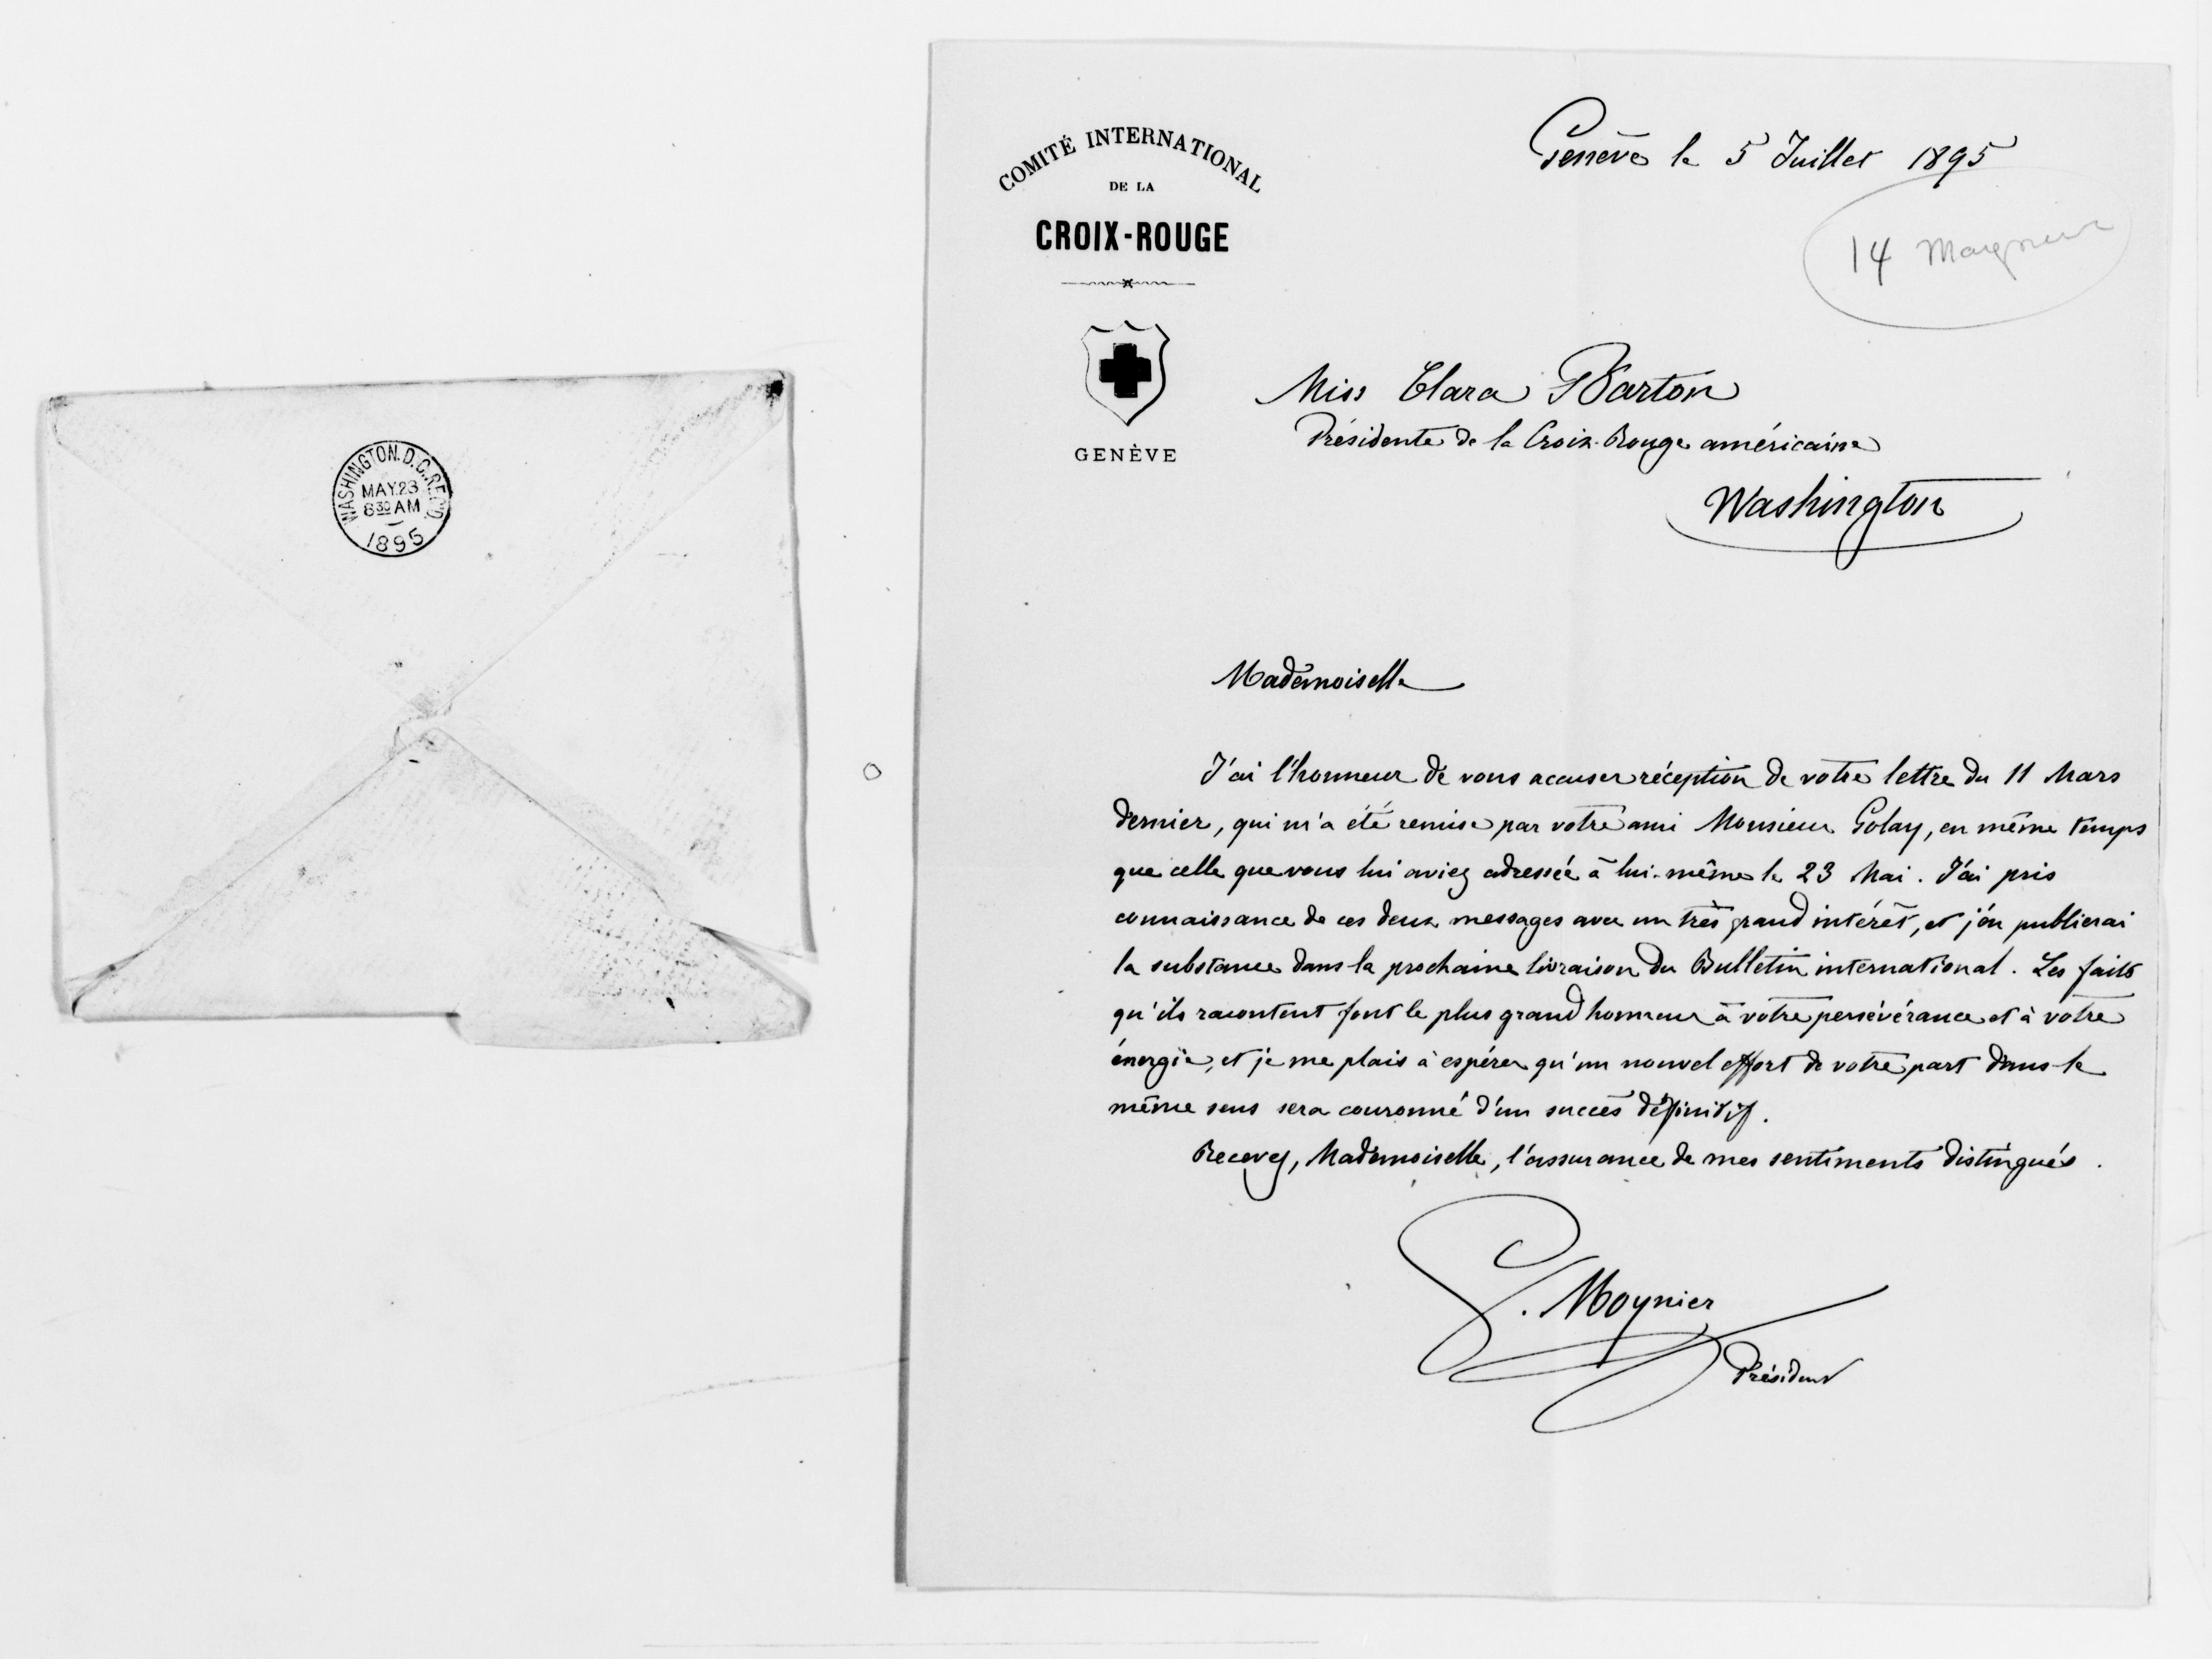 WASHINGTON. D.C. REC'D
MAY 23
8 30 AM
1895
COMITÉ INTERNATIONAL
DE LA
CROIX-ROUGE
GENÈVE
Genève le 5 Juillet 1895
14
Miss Clara Barton
Présidente de la Croix-Rouge américaine
Washington
Mademoiselle
J'ai l'honneur de vous accuser réception de votre lettre du 11 Mars
dernier, qui m'a été remise par votre ami Monsieur Golay, en même temps
que celle que vous lui aviez adressée à lui-même le 23 Mai. J'ai pris
connaissance de ces deux messages avec un très grand intérêt, et j'en publierai
la substance dans la prochaine livraison du Bulletin international. Les faits
qu'ils racontent font le plus grand honneur à votre persévérance et à votre
énergie, et je me plais à espérer qu'un nouvel effort de votre part dans le
même sens sera couronné d'un succès définitif.
Recevez, Mademoiselle, l'assurance de mes sentiments distingués.
G. Moynier
Président